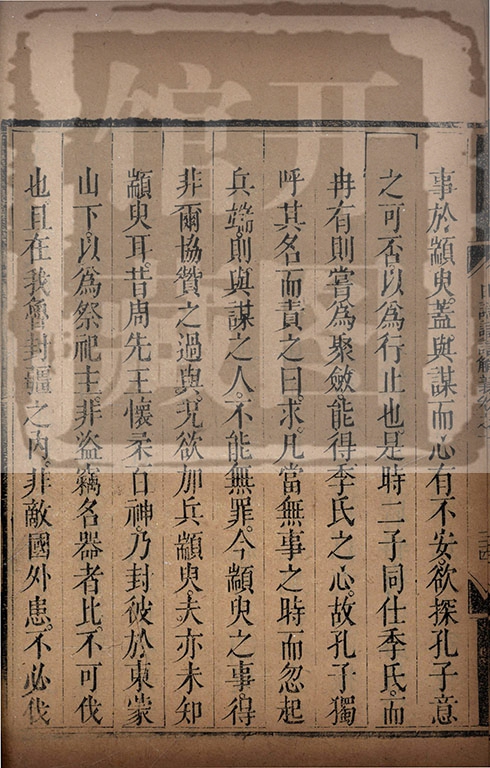 事於顓臾。蓋與謀而心有不安。欲探孔子意
之可否以為行止也是時二子同仕季氏。而
冉有則嘗為聚斂。能得季氏之心。故孔子獨
呼其名而責之曰。求。凡當無事之時而忽起
兵端。則與謀之人。不能無罪。今顓臾之事。得
非爾協贊之過與。況欲加兵顓臾。夫亦未知
顓臾耳。昔周先王懷柔百神。乃封彼於東蒙
山下。以為祭祀主。非盜竊名器者比。不可伐
也且在我魯封疆之內。非敵國外患。不必伐